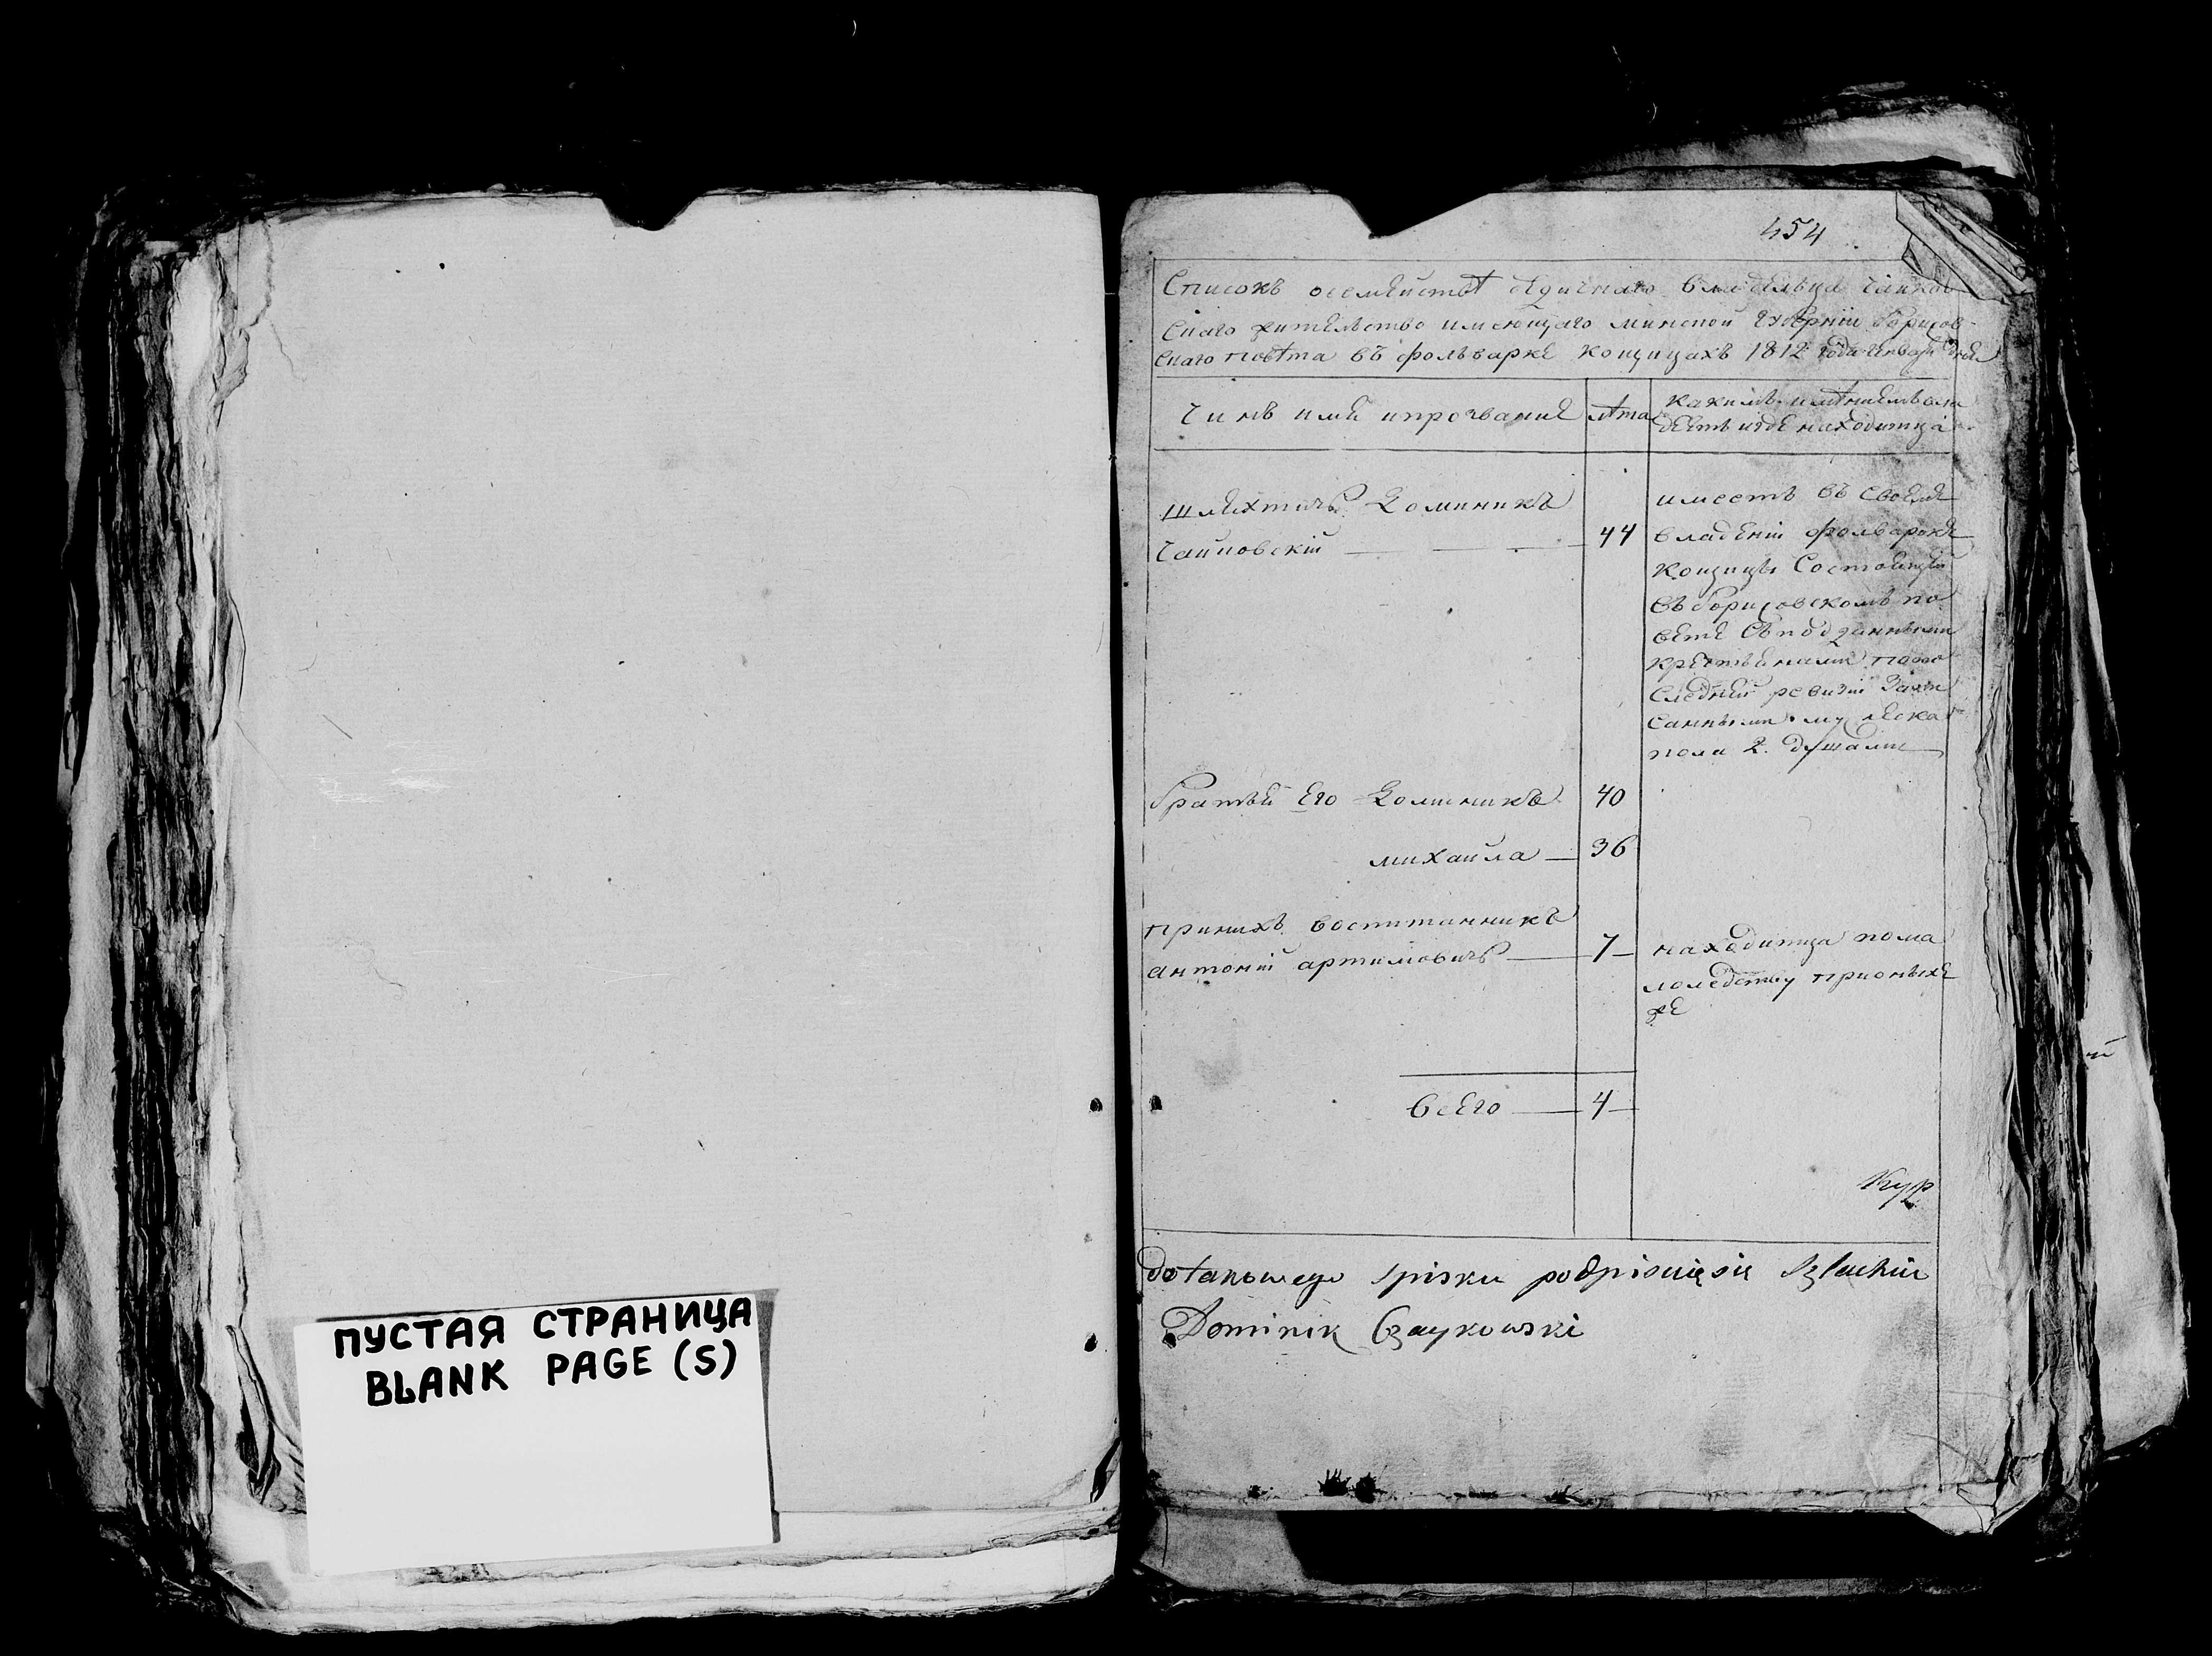 ПУСТАЯ СТРАНИЦА
BLANK PAGE (S)
454
Списокъ осемѣйствѣ владельца Чайков
скаго жительство имеющаго минской губерніи борисов
скаго повѣта въ фольварке Кощицахъ 1812 года
Чинъ имя и прозвание лѣта каким имѣниемъ вла
деетъ и где находитца
шляхтичъ Доминикъ имеетъ въ своем
Чайковский 44 владении фольварокъ
Кощицы состоящей
въ борисовскомъ по
вете
крестьянами по по
следней ревизии запи
санными мужеска
пола 2. душами
братья Его Доминикъ 40
михаила 36
при нихъ воспитанникъ
антоній артимовичъ 7 находитца по ма
лоледству при оныхъ
же
всего 4
Кур
do takowego spisku podpisuię się Szlachcic
Dominik Czaykowski